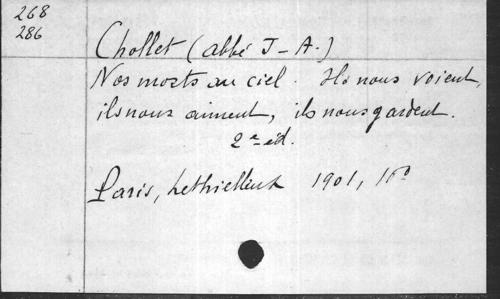 268
286
Chollet (abbé J-A.)
Nos morts au ciel. Ils nous voient,
ils nous aiment, ils nous gardent.
2e éd.
Paris, Lethielleux 1901, 16º